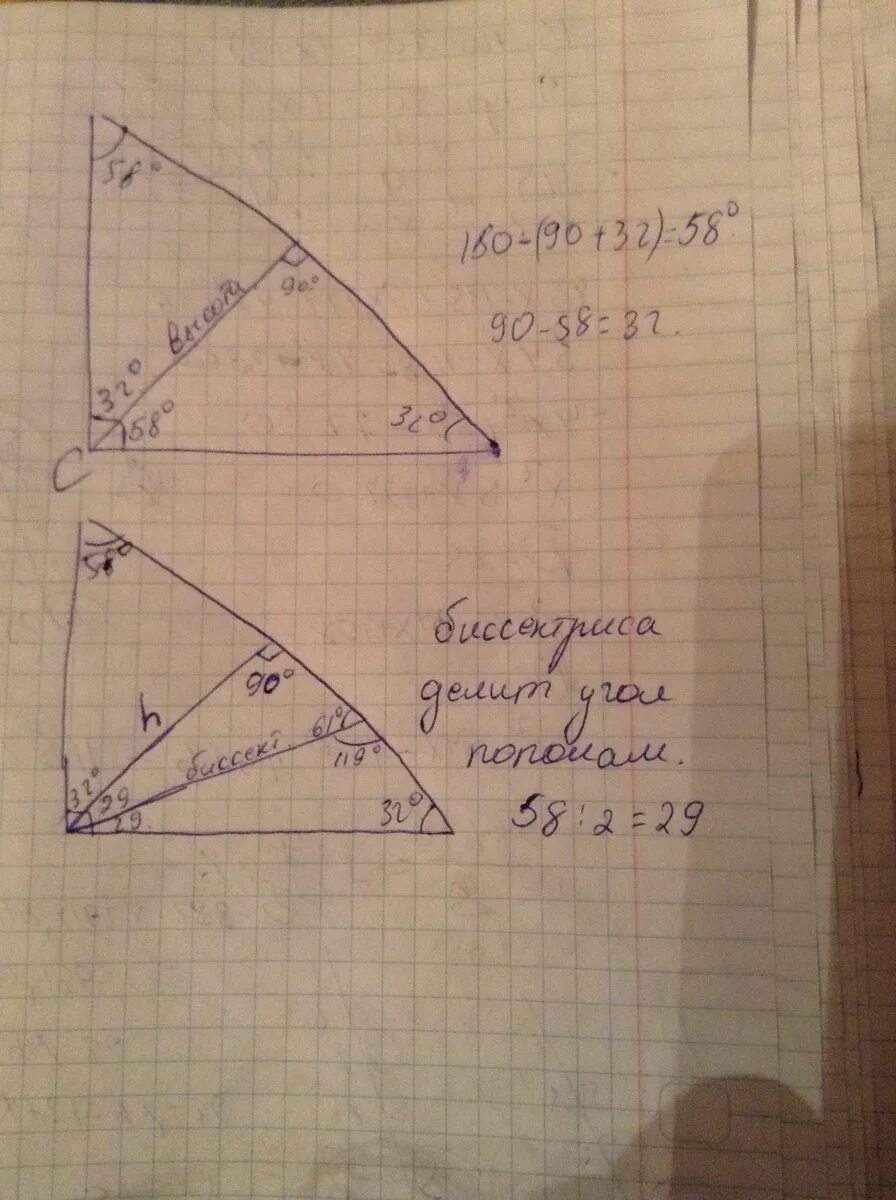 58°
180-(90+32)=58°
90°
высота
90-58=32.
32°
58°
32°
С
58°
биссектриса
90°
делит угол
h
61°
биссект
119°
пополам.
32°
29
29.
32°
58:2=29